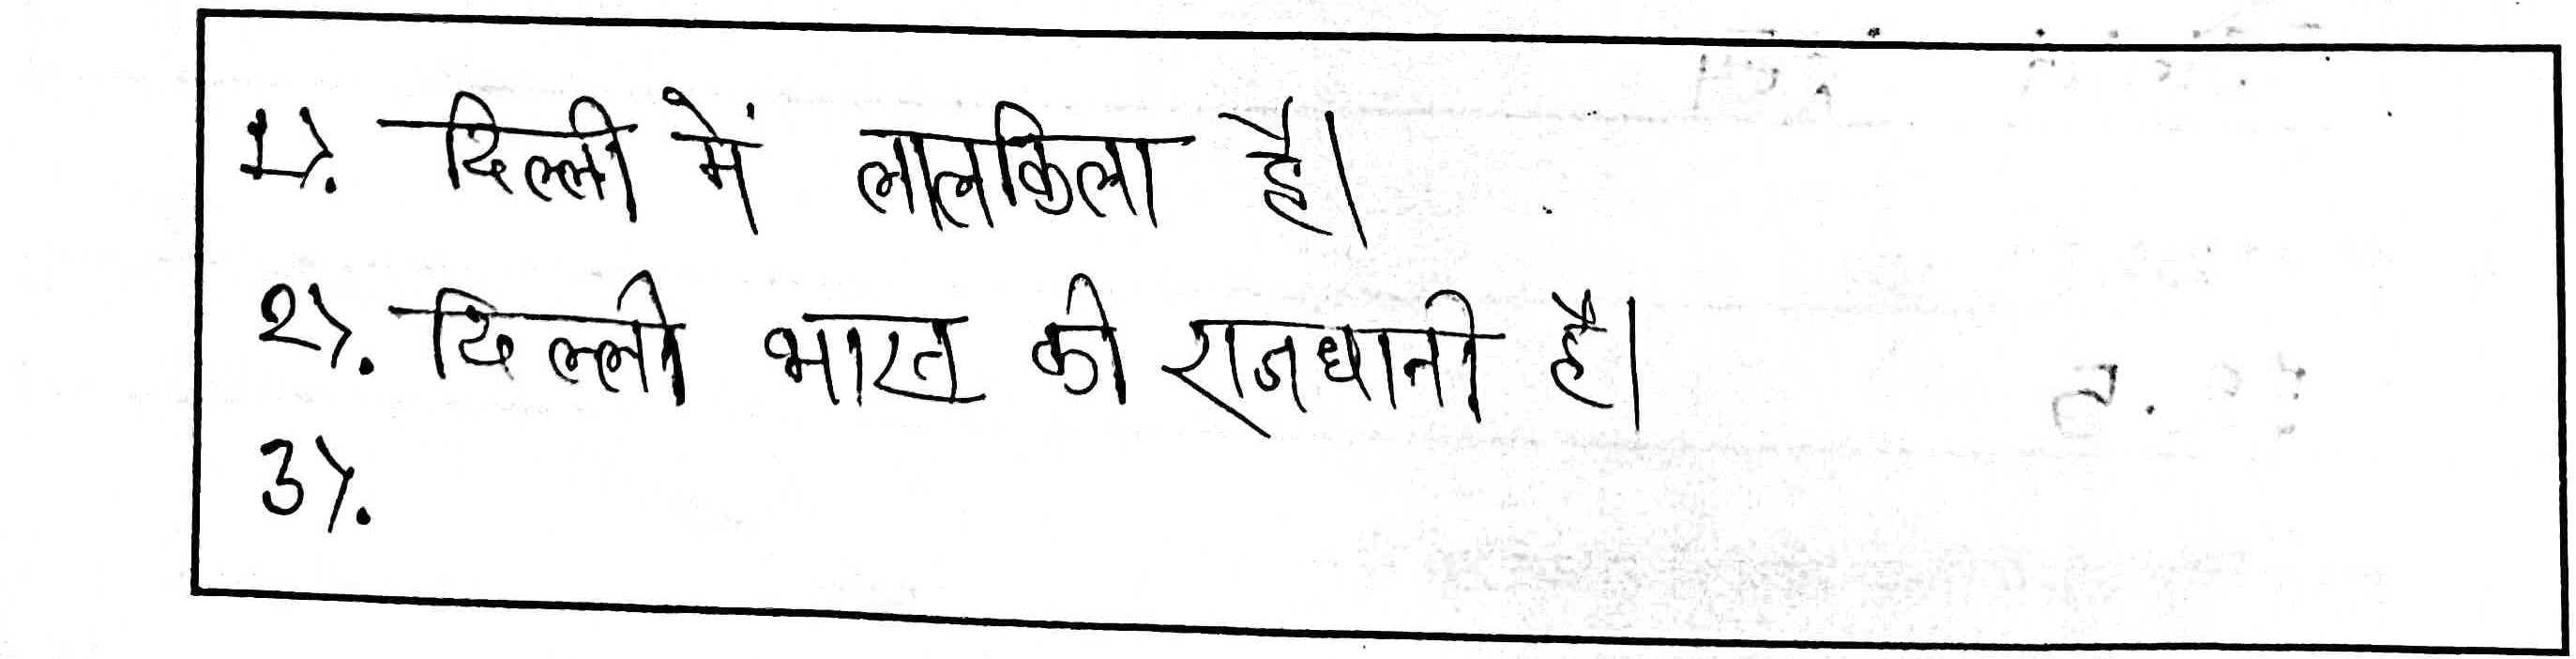 1). दिल्ली में लालकिला है।
2). दिल्ली भारत की राजधानी है।
3).